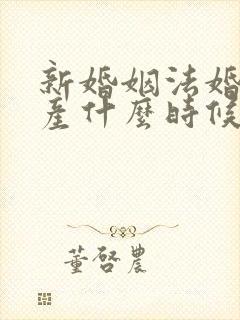 新婚姻法婚
產什麼時候
董啓農